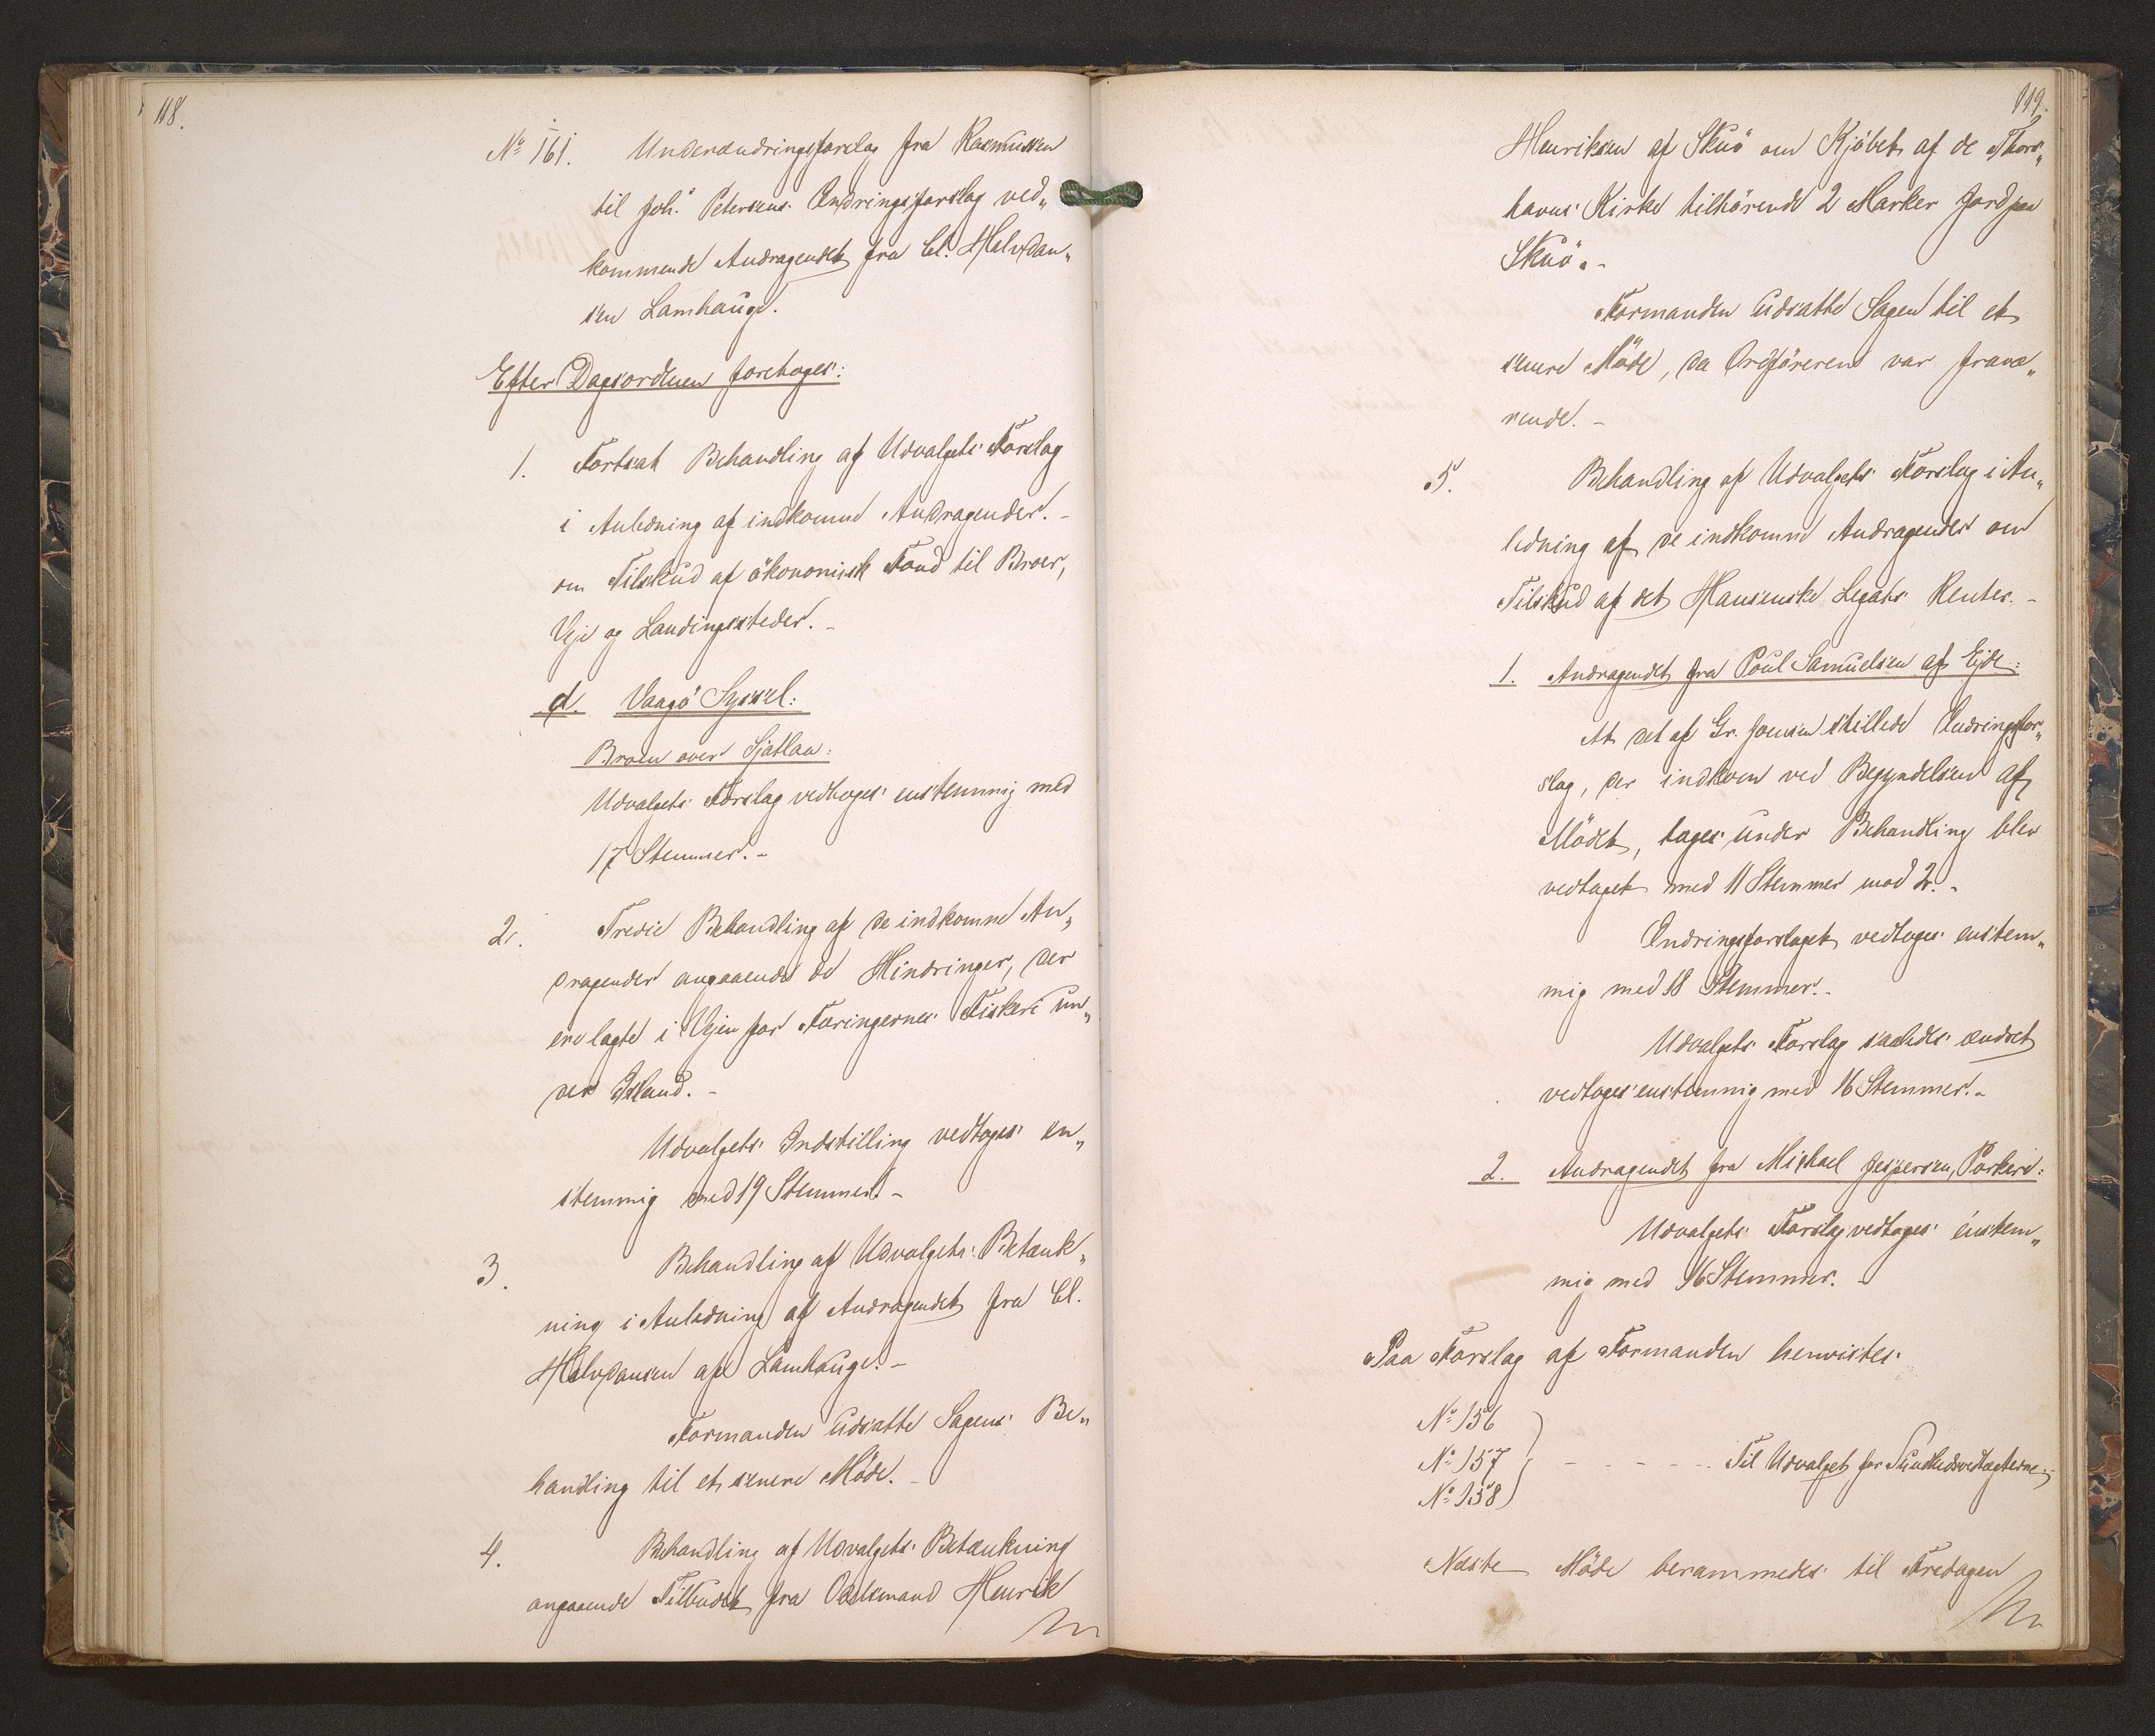 118.
No 161. Underændringsforslag fra Rasmussen
til Joh. Petersens Ændringsforslag ved„
kommende Andragendet fra Cl. Halvdan„
sen Lamhauge.
Efter Dagsordenen foretoges:
1. Fortsat Behandling af Udvalgets Forslag
i Anledning af indkomne Andragender. -
om Tilskud af økonomisk Fond til Broer,
Veje og Landingssteder. -
d. Vaagö Syssel:
Broen over Sjatlaa:
Udvalgets Forslag vedtoges enstemmig med
17 Stemmer. -
2. Tredie Behandling af de indkomne An„
dragender angaaende de Hindringer, der
ere lagte i Vejen for Færingernes Fiskeri un„
der Island. -
Udvalgets Indstilling vedtoges en„
stemmig med 19 Stemmer. -
3. Behandling af Udvalgets Betænk„
ning i Anledning af Andragendet fra Cl.
Halvdansen af Lamhauge. -
Formanden udsatte Sagens Be„
handling til et senere Møde. -
4. Behandling af Udvalgets Betænkning
angaaende Tilbudet fra Odelsmand Henrik
119.
Henriksen af Skuö om Kjöbet af de Thors„
havns Kirke tilhörende 2 Marker Jord paa
Skuö. -
Formanden udsatte Sagen til et
senere Möde, da Ordföreren var fravæ„
rende. -
5. Behandling af Udvalgets Forslag i An„
ledning af de indkomne Andragender om
Tilskud af det Hansenske Legats Renter. -
1. Andragendet fra Poul Samuelsen af Ejde:
At det af Gr. Joensen stillede Ændringsfor„
slag, der indkom ved Begyndelsen af
Mödet, toges under Behandling blev
vedtaget med 11 Stemmer mod 2. -
Ændringsforslaget vedtoges enstem„
mig med 18 Stemmer. -
Udvalgets Forslag saaledes ændret
vedtoges enstemmig med 16 Stemmer. -
2. Andragendet fra Michael Jespersen, Porkere:
Udvalgets Forslag vedtoges enstem„
mig med 16 Stemmer. -
Paa Forslag af Formanden henvistes:
No 156
No 157 - - - - - Til Udvalget for Sundhedsvedtægterne. -
No 158
Næste Möde berammedes til Fredagen